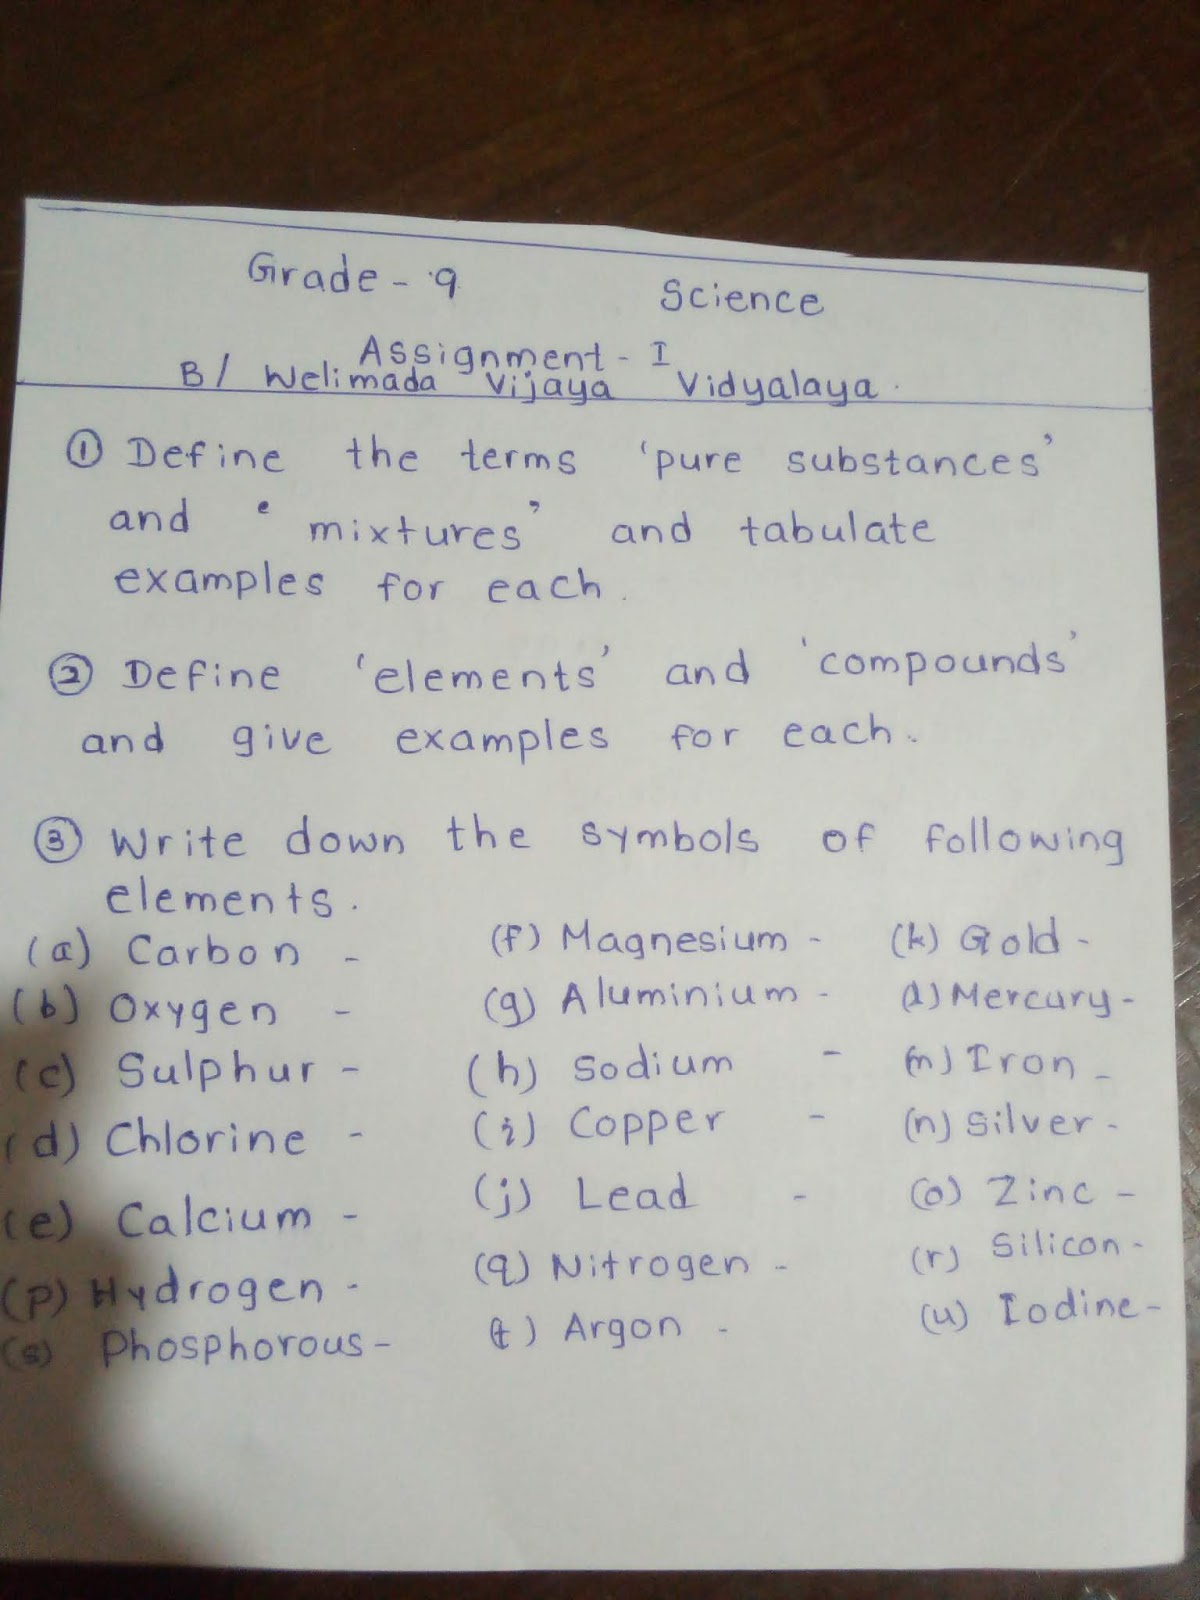 Grade - 9 Science
Assignment - I
B/ Welimada Vijaya Vidyalaya.
① Define the terms 'pure substances'
and 'mixtures' and tabulate
examples for each.
② Define 'elements' and 'compounds'
and give examples for each.
③ Write down the symbols of following
elements.
(a) Carbon - (f) Magnesium - (k) Gold -
(b) Oxygen - (g) Aluminium - (l) Mercury -
(c) Sulphur - (h) Sodium - (m) Iron -
(d) Chlorine - (i) Copper - (n) Silver -
(e) Calcium - (j) Lead - (o) Zinc -
(p) Hydrogen - (q) Nitrogen - (r) Silicon -
(s) Phosphorous - (t) Argon - (u) Iodine -